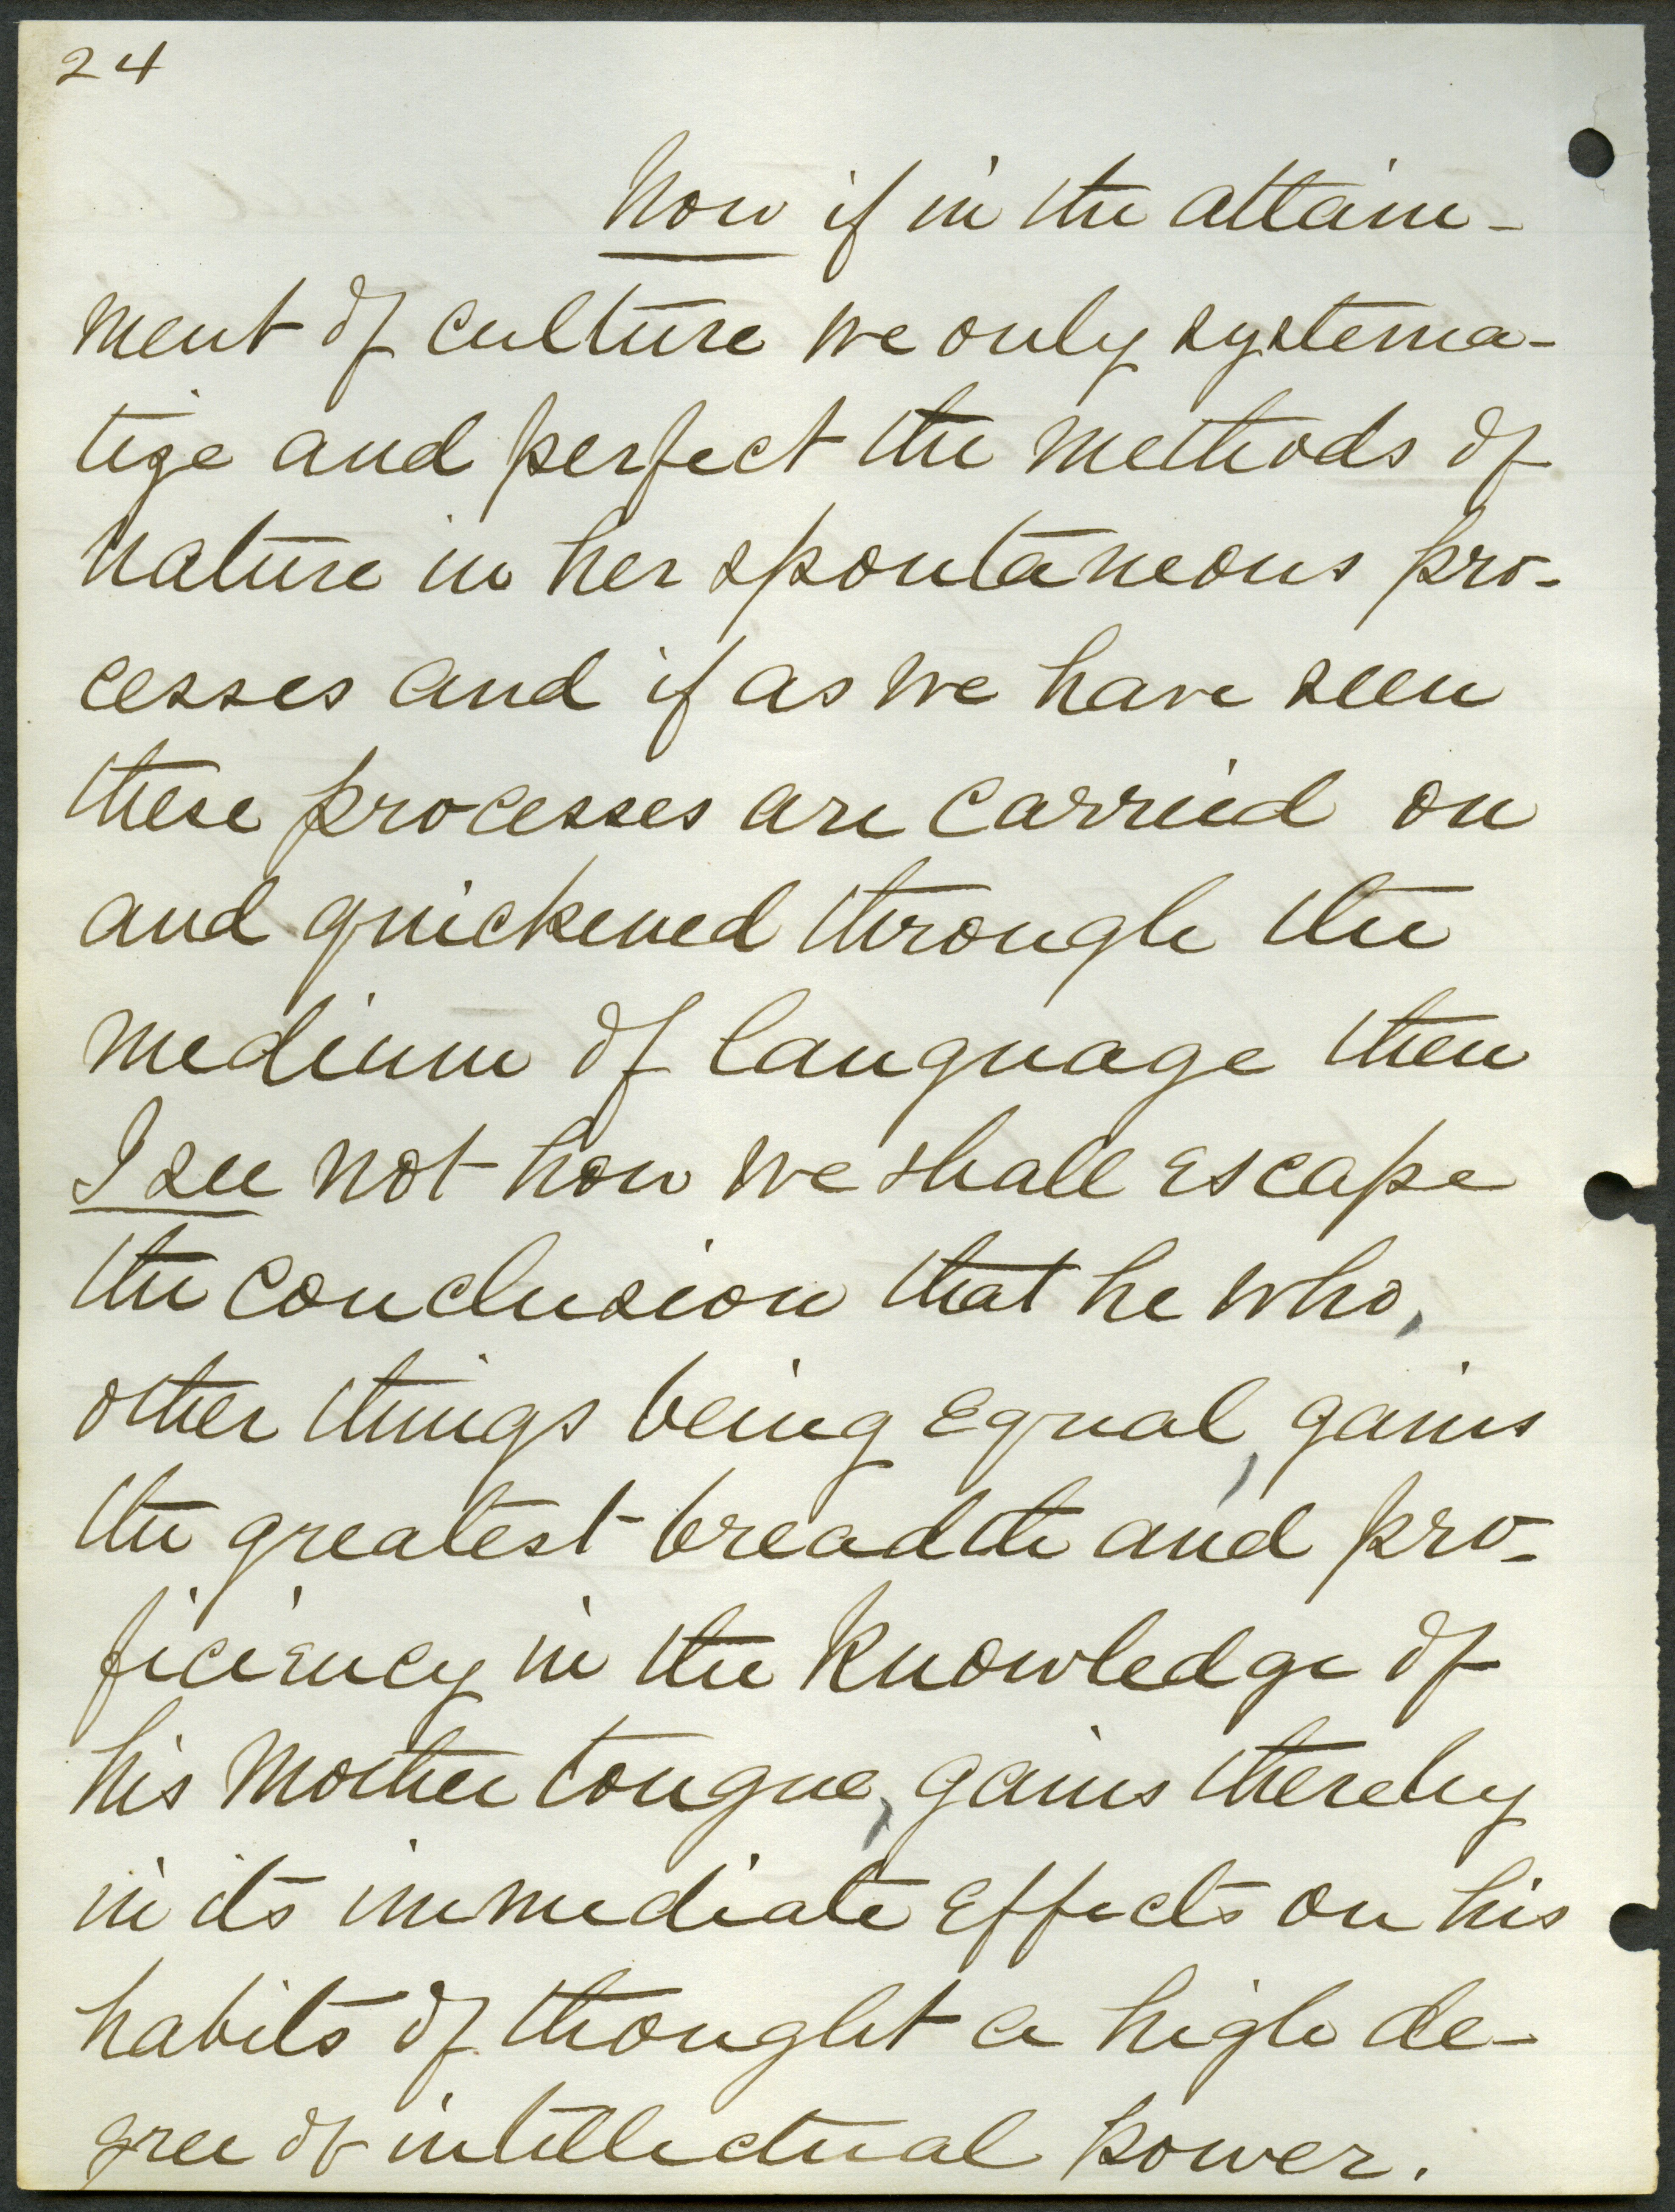 24
Now if in the attain-
ment of culture we only systema-
tize and perfect the methods of
nature in her spontaneous pro-
cesses and if as we have seen
these processes are carried on
and quickened through the
medium of language then
I see not how we shall escape
the conclusion that he who,
other things being equal, gains
the greatest breadth and pro-
ficiency in the knowledge of
his mother tongue, gains thereby
in its immediate effects on his
habits of thought a high de-
gree of intellectual power.